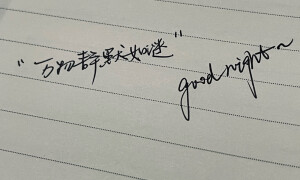 “万物静默如谜”
good night~